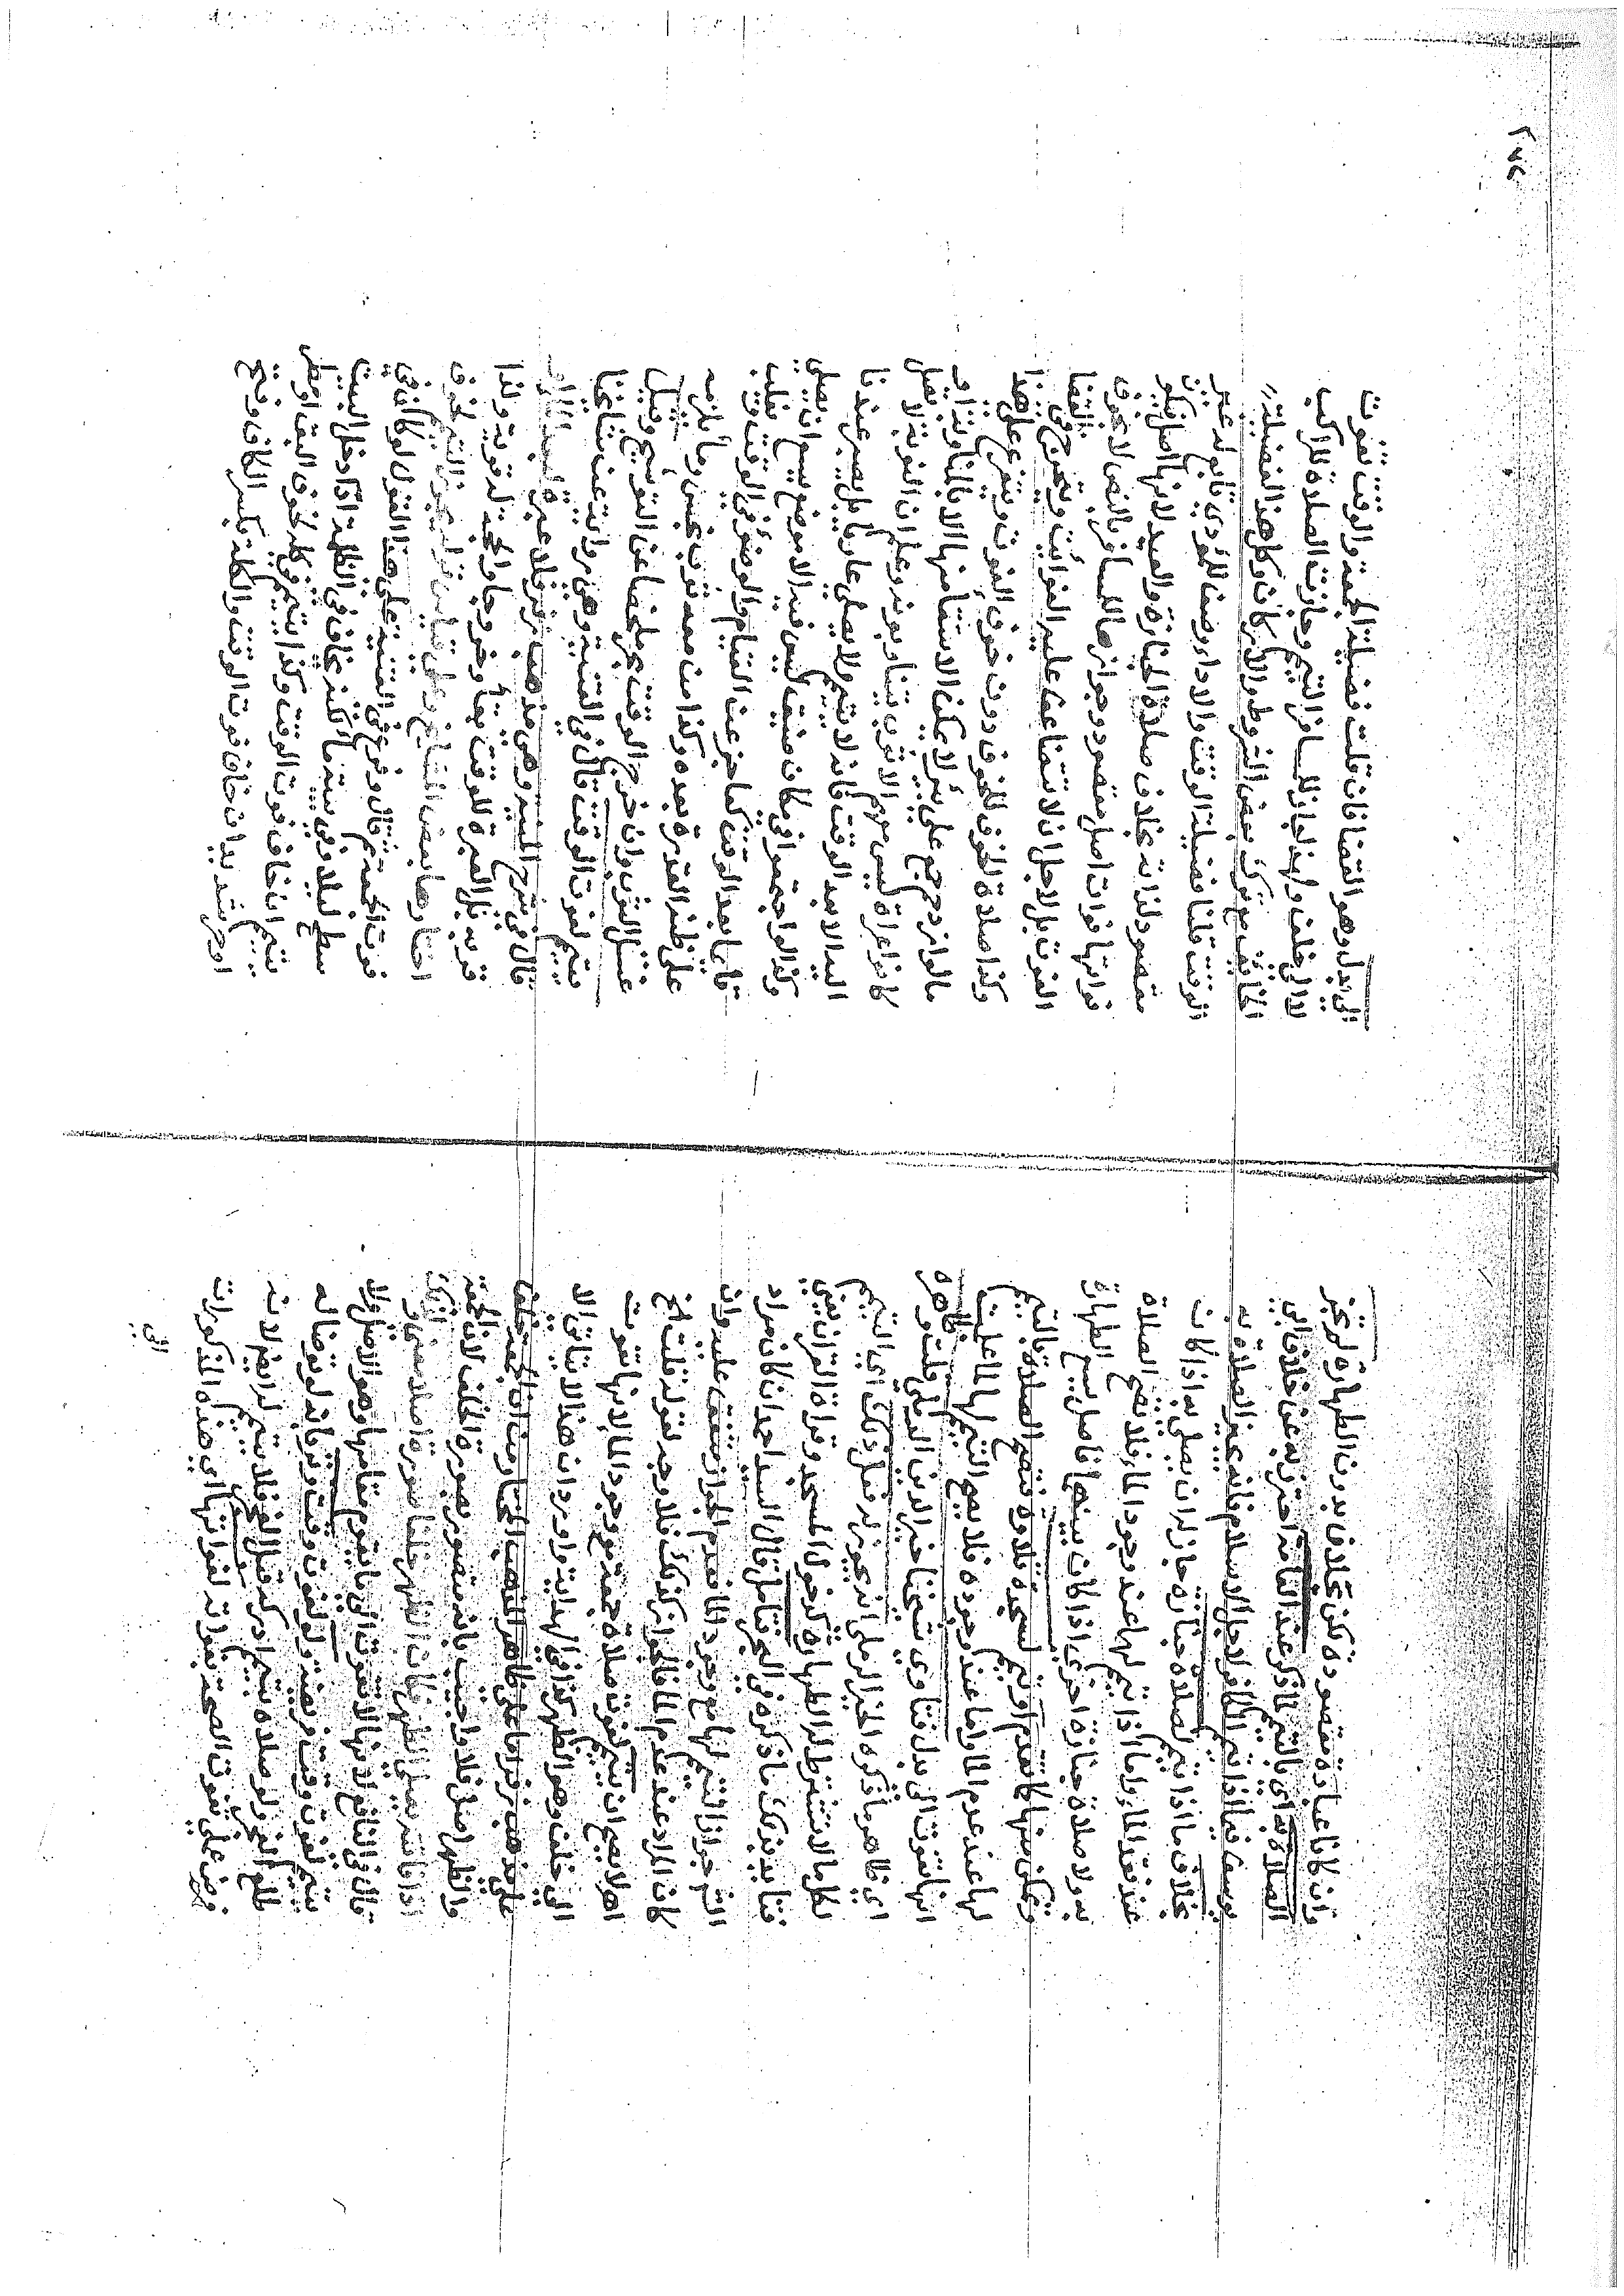 وان كانا عبادة مقصودة لكن بخلاف بدون الطهارة لم تجز
الصلاة به اي بالتيمم لما ذكر عند العامة احترز به عن خلاف ابي
يوسف فيما اذا تيمم الكافر لاجل الاسلام فانه يجوز الصلاة به
بخلاف ما اذا تيمم لصلاة جنازة جاز له ان يصلي به اذا كان
عند فقد الماء واما اذا تيمم لها عند وجود الماء فلا تصح الصلاة
به ولا صلاة جنازة اخرى اذا كان بينهما فاصل يسع الطهارة
وتمكن منها كما تقدم او تيمم لسجدة تلاوة تصح الصلاة بالتيمم
لها عند عدم الماء واما عند وجوده فلا يصح التيمم لها لما علمت
انها تفوت الى بدل فتاوي شيخنا خير الدين الرملي قلت وظاهره
اي ظاهر ما ذكره الخير الرملي انه يجوز له فعل ذلك اي التيمم
لكل ما لا تشترط له الطهارة كدخول المسجد وقراة القران يعني
فتايد بذلك ما ذكره في البحر فتامل قال السيد احمد ان كان مراد
جواز التيمم لها مع وجود الما فعدم الجواز متفق عليه وان
كان المراد عند عدم الما فالجواز كذلك فلا وجه لقوله قلت الخ
اهـ لا يصح ان تيمم لفوت صلاة جمعة مع وجود الما لانها تفوت
الى خلف وهو الظهر كذا في الهداية واورد ان هذا لا يتاتى الا
على مذهب زفر اما على ظاهر المذهب المختار من ان الجمعة خلف
والظهر اصل فلا واجيب بانه متصور بصورة الخلف لان الجمعة
اذا فاتت يصلى الظهر فكان الظهر خلفا صورة اصلا معنى
قال في النافع لانها تفوت الى ما يقوم مقامها وهو الاصل ولا
يتيمم لفوت وقت فريضة ولو لفوت وقت وتر فانه لو توضا له
طلع الفجر ولو صلاه بتيمم ادركه قبل الفجر فلا يتيمم له ايضا لانه
فرض عملي يفوت الصحة بفواته لفواتها اي هذه المذكورات
الى
الى بدل وهو القضا فان قلت فضيلة الجمعة والوقت تفوت
لا الى خلف ولهذا جاز للمسافر التيمم وجازت الصلاة للراكب
الخايف مع ترك بعض الشروط والاركان وكل هذا لفضيلة
الوقت قلنا فضيلة الوقت والاداء وصف للمودي تابع له غير
مقصود لذاته بخلاف صلاة الجنازة والعيد لانها اصل فيكون
فواتها فوات اصل مقصود وجوازها للمسافر بالنص لا لخوف
الفوت بل لاجل ان لا تتضاعف عليه الفوايت ويتحرج في القضا
وكذا صلاة الخوف للخوف دون خوف الفوت ويتفرع على هذا
ما لو ازدحم جمع على بئر لا يمكن الاستقا منها الا بالمناوبة او
كانوا عراة ليس معهم الا ثوب يتناوبونه وعلم ان النوبة لا تصل
اليه الا بعد الوقت فانه لا يتيمم ولا يصلي عاريا بل يصبر عندنا
وكذا لو اجتمعوا في مكان ضيق ليس فيه الا موضع يسع ان يصلي
قائما بعد الوقت كما عجز عن القيام والوضوء في الوقت ويغلب
على ظنه القدرة بعده وكذا من معه ثوب نجس وما يلزمه
غسل الثوب وان خرج الوقت بحر ملخصا عن التوشيح وقيل
يتيمم لفوت الوقت قال في القنية وهي رواية عن مشايخنا
قال في شرح المنية وهي مذهب زفر
قربه بل العبرة للوقت بقاء وخروجا والحجة له قوية ولذا
اختارها بعض المشايخ وعلى قياس قوله يجوز التيمم لخوف
فوت الجمعة قال وفرع في القنية على هذا القول لو كان في
سطح ليلا وفي بيته ما لكنه يخاف في الظلمة اذا دخل البيت
يتيمم ان خاف فوت الوقت وكذا يتيمم في كلة لخوف البق او مطر
او حر شديد ان خاف فوت الوقت والكلة بكسر الكاف وفتح